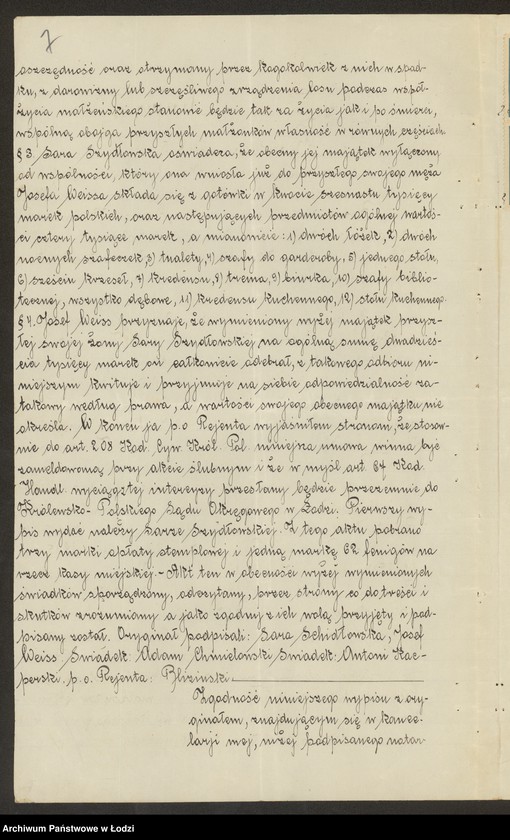 7
oszczędność oraz otrzymany przez kogokolwiek z nich w spad-
ku, z darowizny lub szczęśliwego zrządzenia losu podczas współ-
życia małżeńskiego stanowić będzie tak za życia jak i po śmierci,
wspólną obojga przyszłych małżonków własność w równych częściach.
§ 3 Sara Szydłowska oświadcza, że obecny jej majątek wyłączony
od wspólności, który ona wniosła już do przyszłego swojego męża
Josefa Weissa składa się z gotówki w kwocie szesnastu tysięcy
marek polskich, oraz następujących przedmiotów ogólnej wartoś-
ci cztery tysiące marek, a mianowicie: 1) dwóch łóżek, 2) dwóch
nocnych szafeczek, 3) tualety, 4) szafy do garderoby, 5) jednego stołu,
6) sześciu krzeseł, 7) kredensu, 8) trema, 9) biurka, 10) szafy biblio-
tecznej, wszystko dębowe, 11) kredensu kuchennego, 12) stołu kuchennego.
§ 4. Josef Weiss przyznaje, że wymieniony wyżej majątek przysz-
łej swojej żony Sary Szydłowskiej na ogólną sumę dwadzieś-
cia tysięcy marek on całkowicie odebrał, z takowego odbioru ni-
niejszym kwituje i przyjmuje na siebie odpowiedzialność za
takowy według prawa, a wartości swojego obecnego majątku nie
określa. W końcu ja p.o Rejenta wyjaśniłem stronom, że stosow-
nie do art. 208 Kod. Cyw. Król. Pol. niniejsza umowa winna być
zameldowaną przy akcie ślubnym i że w myśl art. 67 Kod.
Handl. wyciąg z tej intercyzy przesłany będzie przezemnie do
Królewsko-Polskiego Sądu Okręgowego w Łodzi. Pierwszy wy-
pis wydać należy Sarze Szydłowskiej. Z tego aktu pobrano
trzy marki opłaty stemplowej i jedną markę 62 fenigów na
rzecz kasy miejskiej. - Akt ten w obecności wyżej wymienionych
świadków sporządzony, odczytany, przez strony co do treści i
skutków zrozumiany a jako zgodny z ich wolą przyjęty i pod-
pisany został. Oryginał podpisali: Sara Schidłowska, Josef
Weiss Świadek: Adam Chmieloński Świadek: Antoni Kac-
perski. p.o. Rejenta: Blizinski
Zgodność niniejszego wypisu z ory-
ginałem, znajdującym się w kance-
larji mej, niżej podpisanego notar-
Archiwum Państwowe w Łodzi